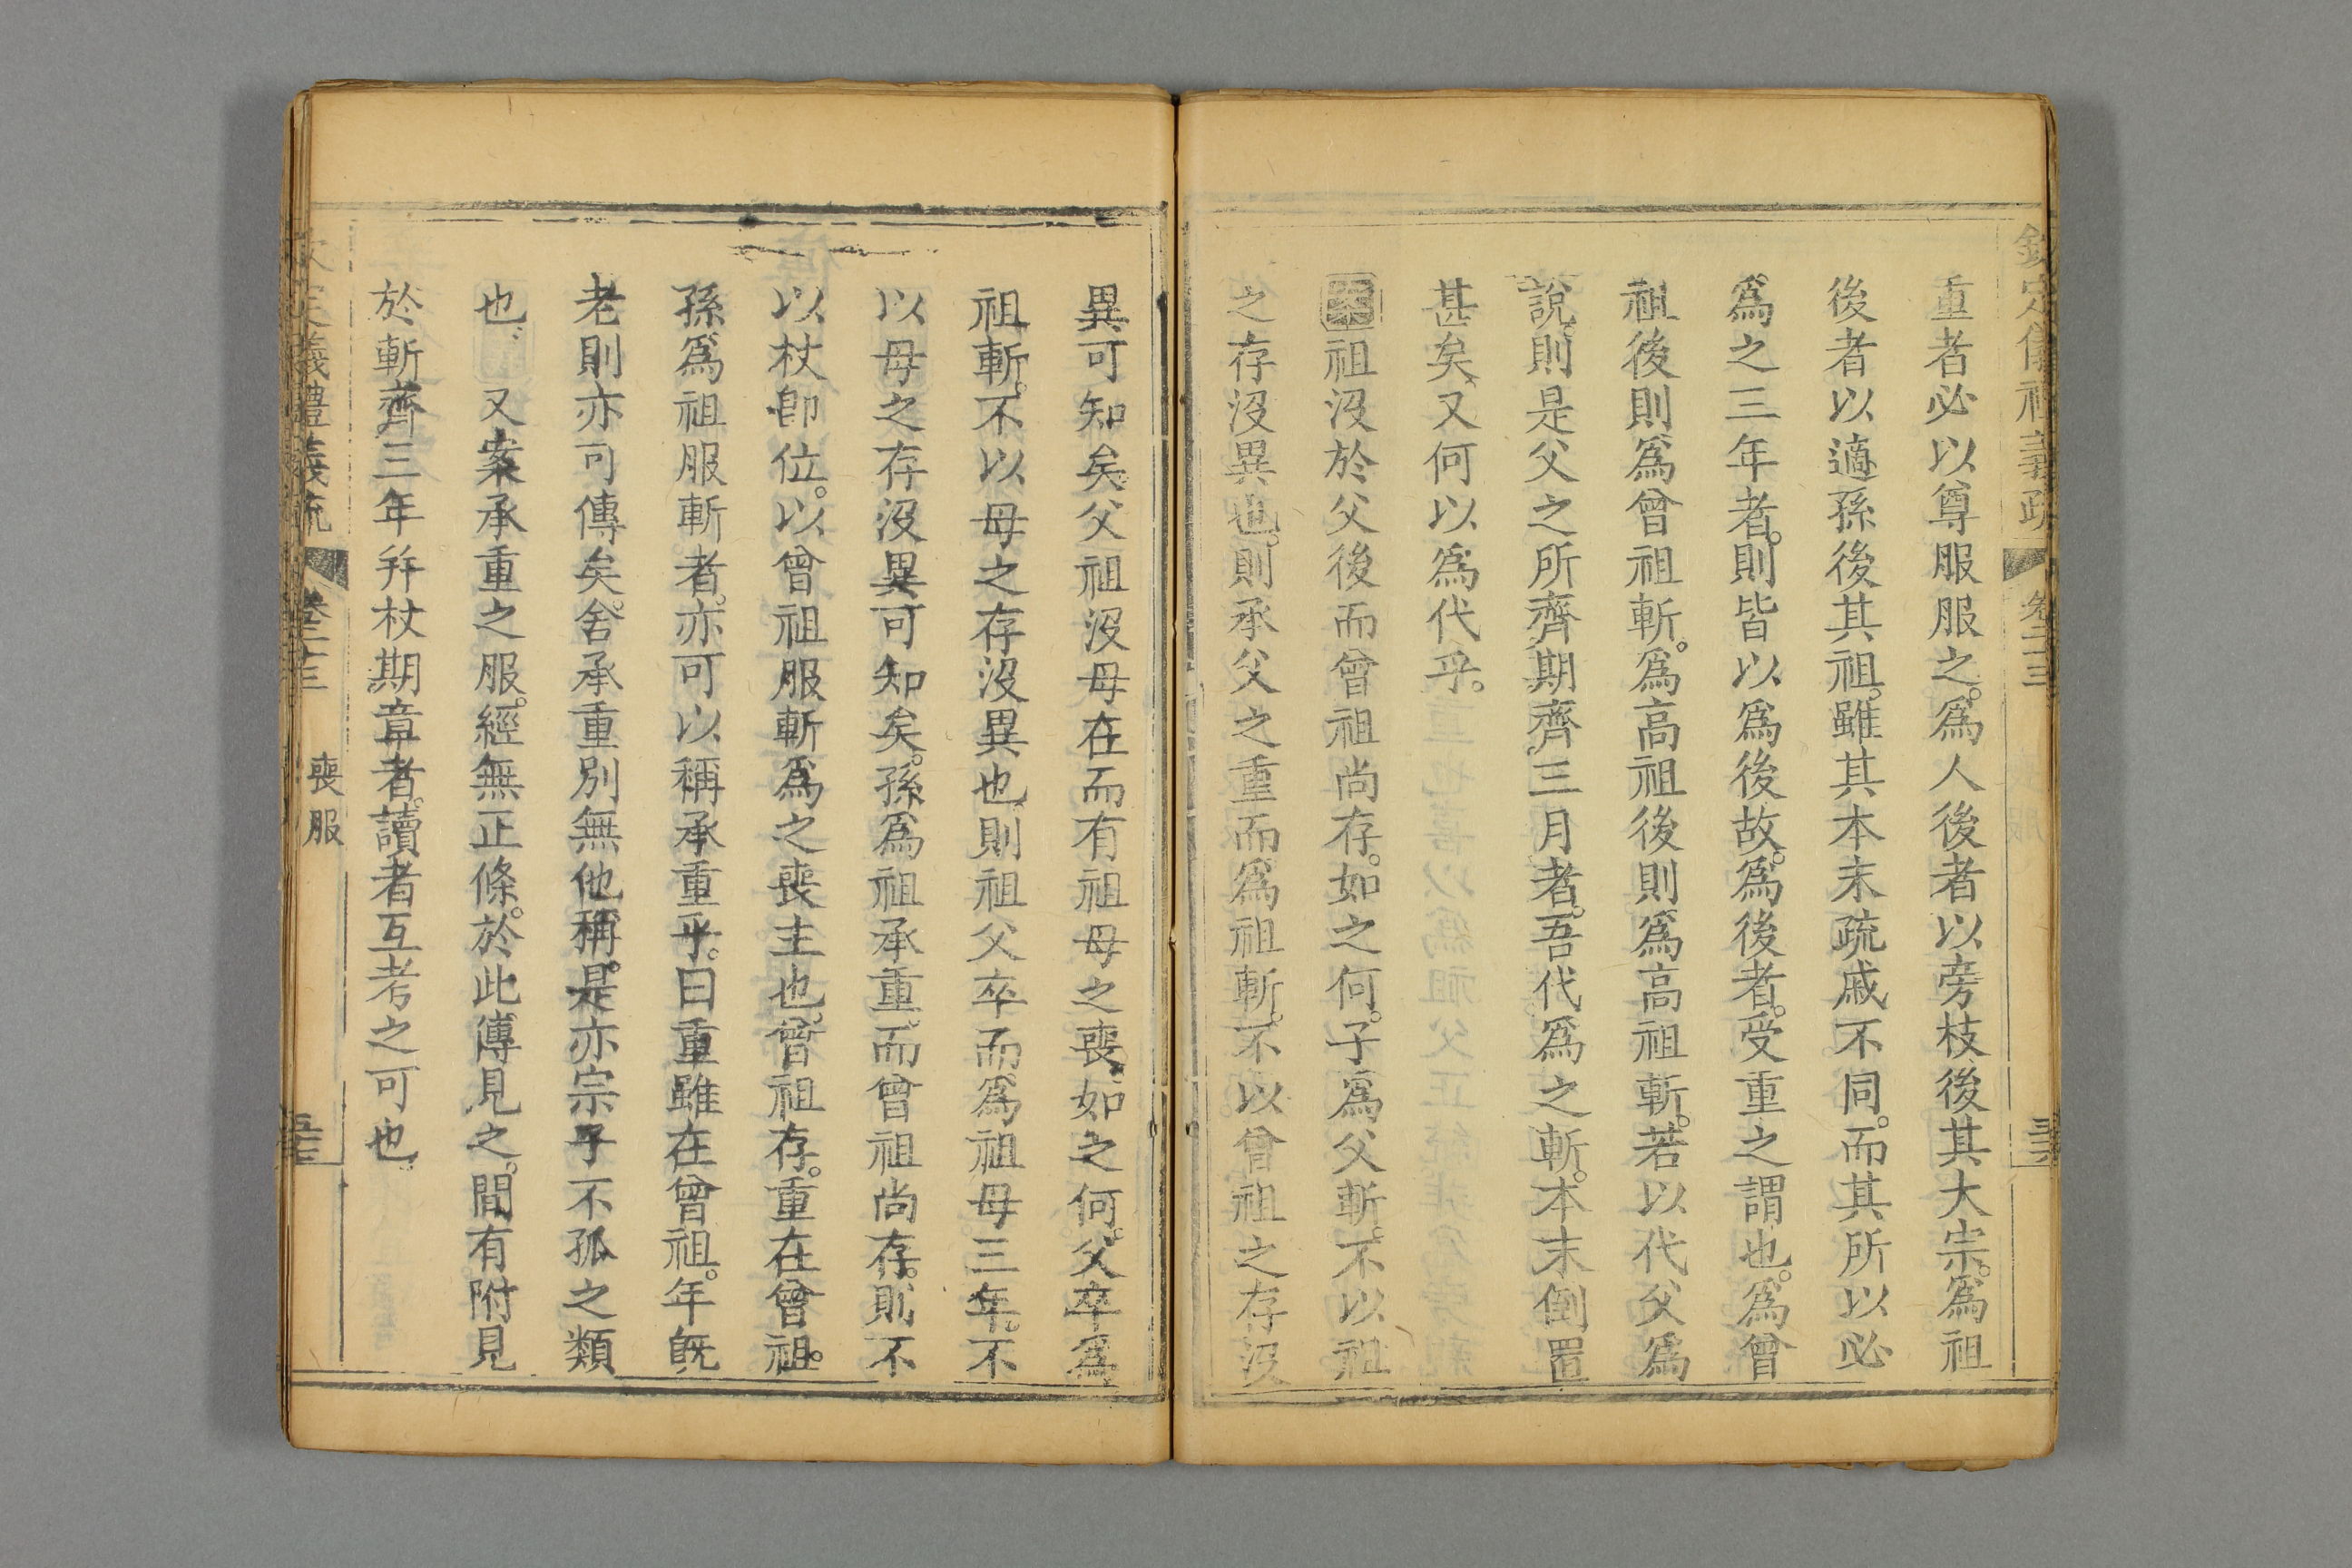 欽定儀禮義疏 卷二十三
重者必以尊服服之。爲人後者以旁枝後其大宗。爲祖
後者以適孫後其祖。雖其本末疏戚不同。而其所以必
爲之三年者。則皆以爲後故。爲後者。受重之謂也。爲曾
祖後則爲曾祖斬。爲高祖後則爲高祖斬。若以代父爲
說。則是父之所齊期齊三月者。吾代爲之斬。本末倒置
甚矣。又何以爲代乎。
案祖没於父後而曾祖尚存。如之何。子爲父斬。不以祖
之存没異也。則承父之重而爲祖斬。不以曾祖之存没
異可知矣。父祖没母在而有祖母之喪。如之何。父卒爲
祖斬。不以母之存没異也。則祖父卒而爲祖母三年。不
以母之存没異可知矣。孫爲祖承重。而曾祖尚存。則不
以杖卽位。以曾祖服斬爲之喪主也。曾祖存。重在曾祖。
孫爲祖服斬者。亦可以稱承重乎。曰重雖在曾祖。年旣
老則亦可傳矣。舍承重別無他稱。是亦宗子不孤之類
也。 又案承重之服。經無正條。於此傳見之。間有附見
於斬齊三年并杖期章者。讀者互考之可也
欽定儀禮義疏 卷二十三 喪服